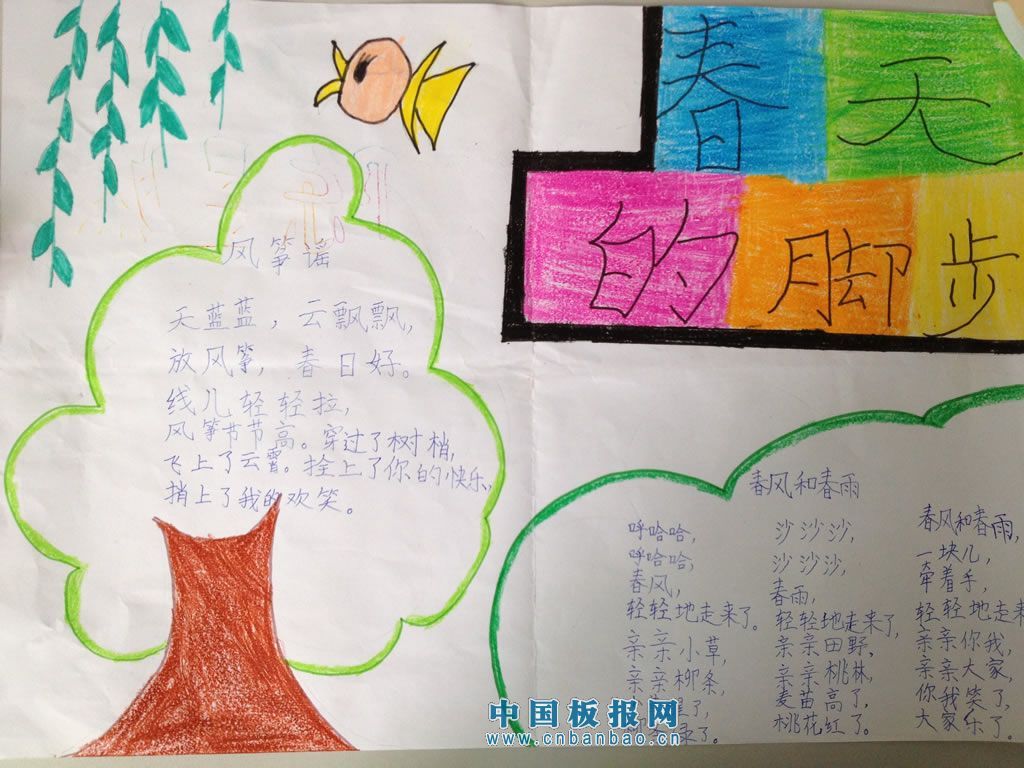 春天
的脚步
风筝谣
天蓝蓝，云飘飘，
放风筝，春日好。
线儿轻轻拉，
风筝节节高。穿过了树梢，
飞上了云霄。拴上了你的快乐，
捎上了我的欢笑。
春风和春雨
呼哈哈，
呼哈哈，
春风，
轻轻地走来了。
亲亲小草，
亲亲柳条，
了，
绿了。
沙沙沙，
沙沙沙，
春雨，
轻轻地走来了，
亲亲田野，
亲亲桃林，
麦苗高了，
桃花红了。
春风和春雨，
一块儿，
牵着手，
轻轻地走来
亲亲你我，
亲亲大家，
你我笑了，
大家乐了。
中国板报网
www.cnbanbao.cn